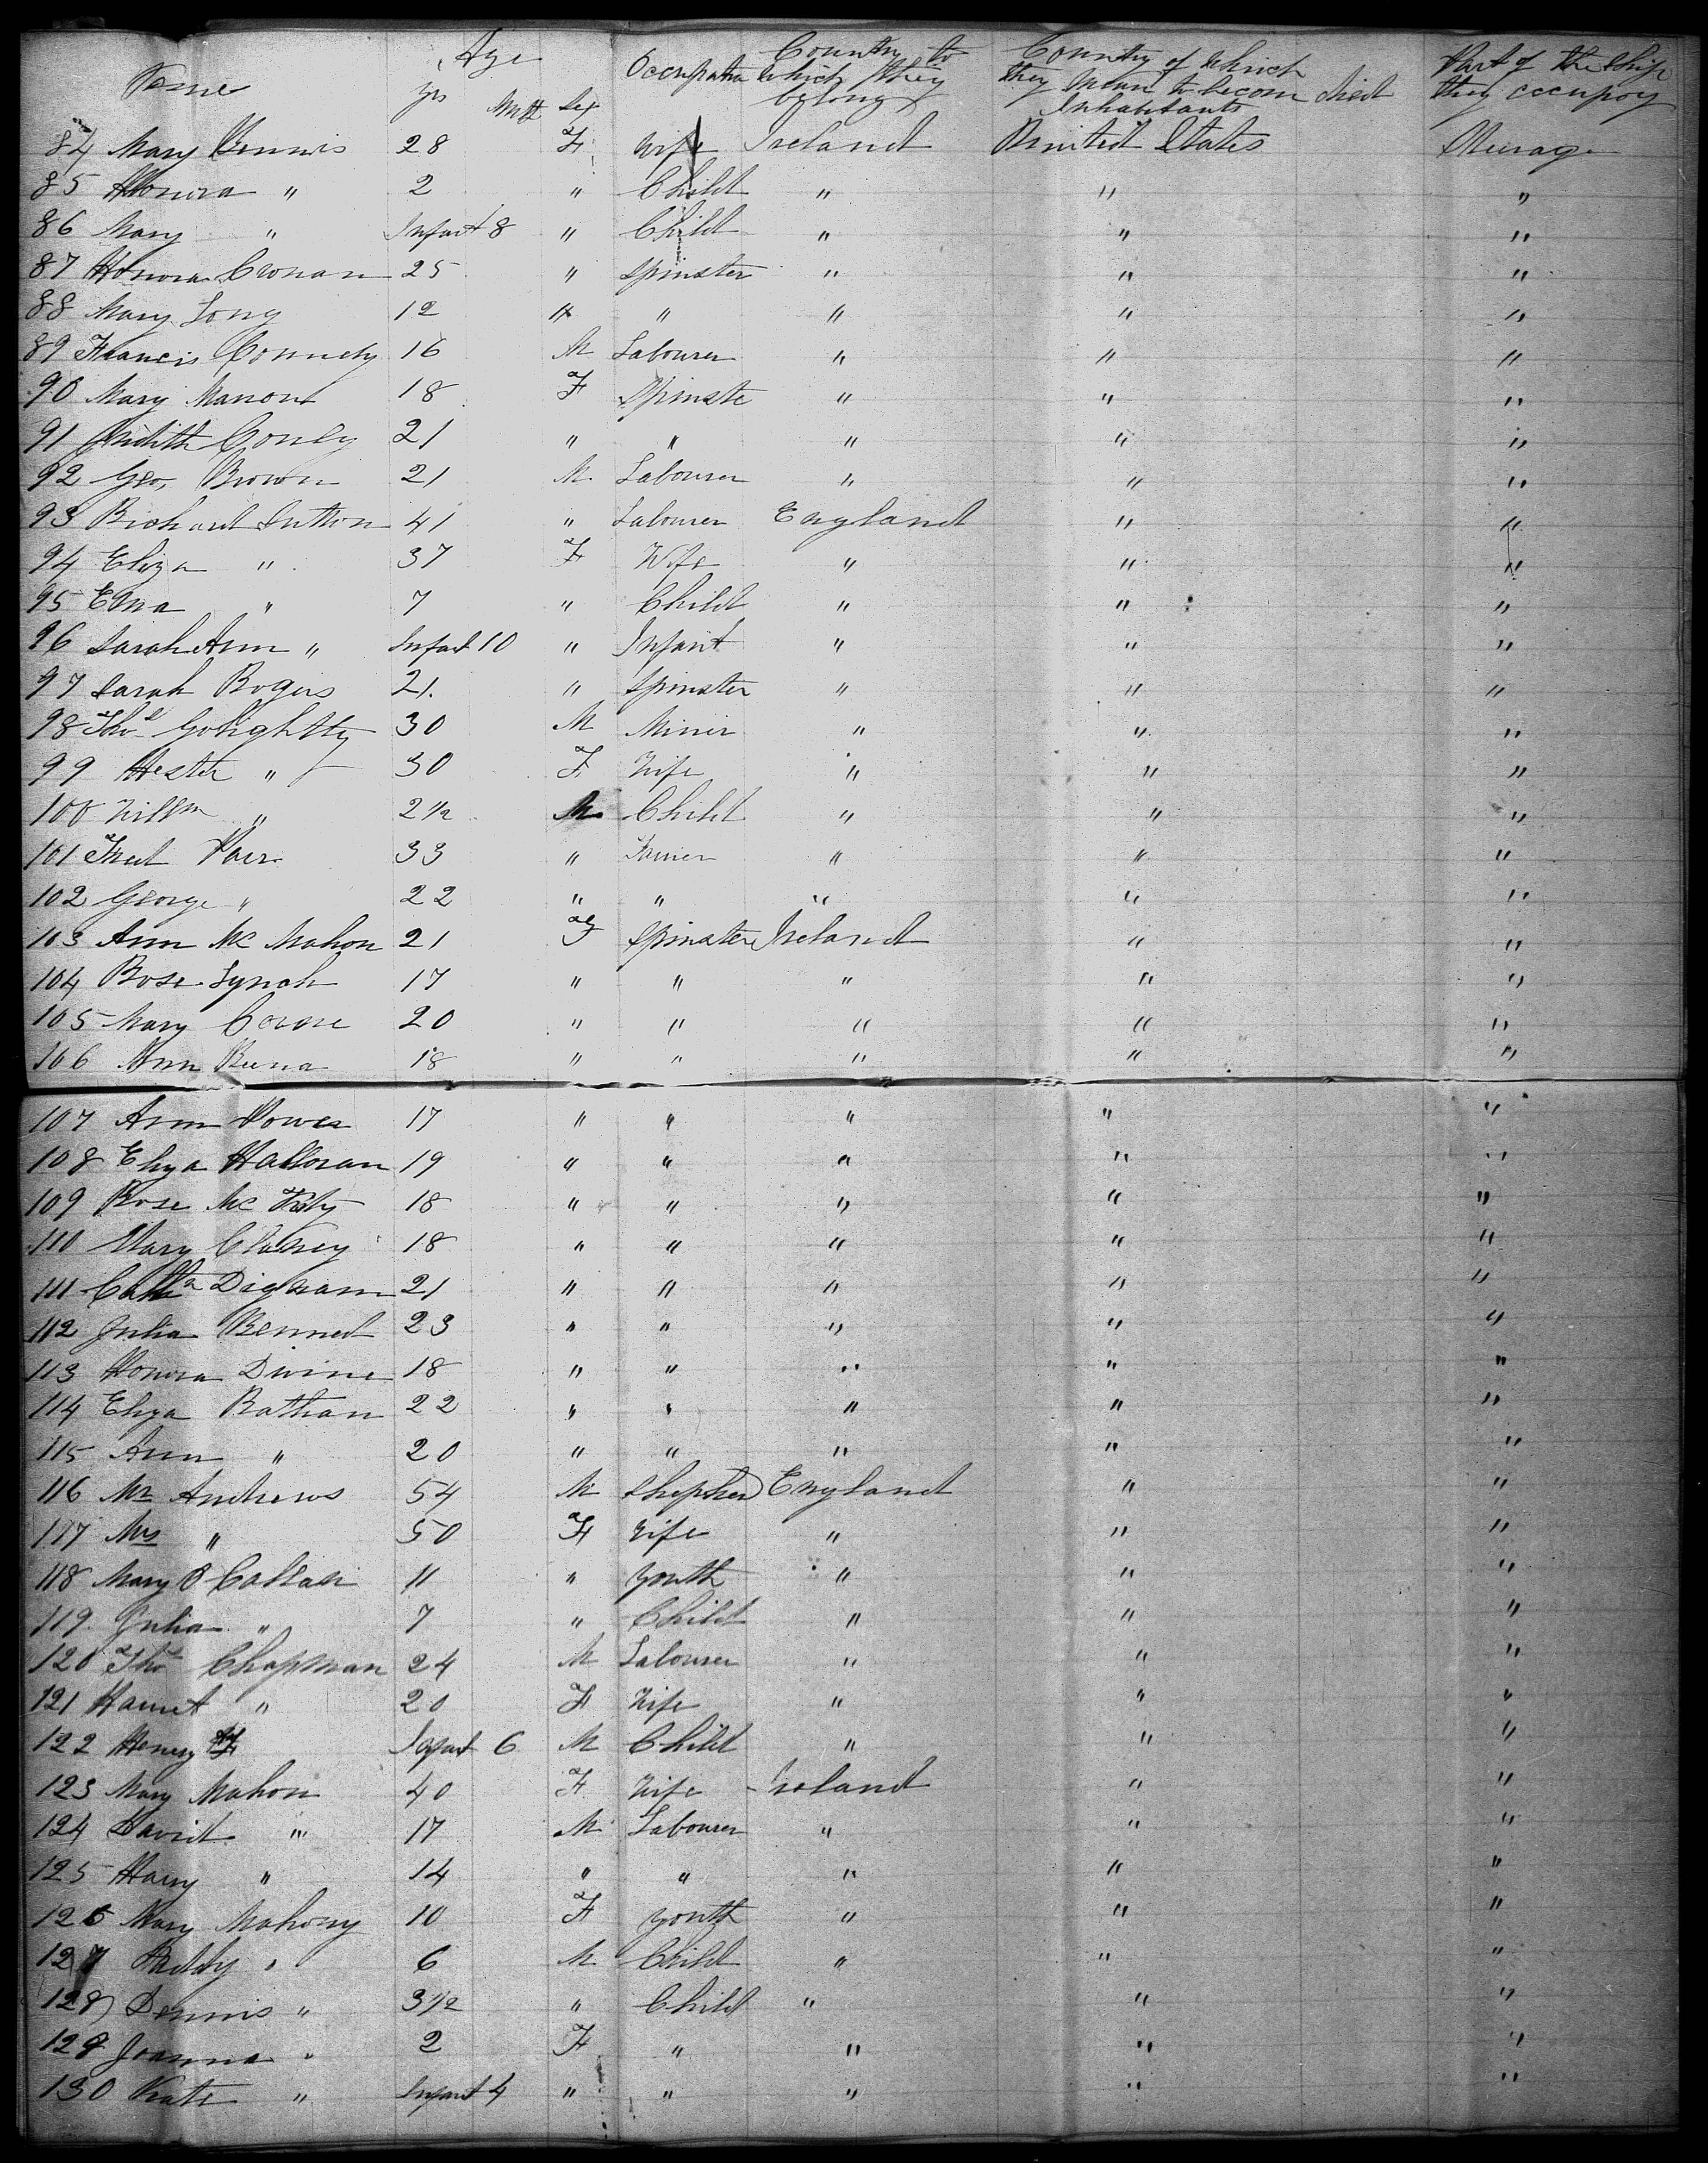 Name Age yrs Mnth Sex Occupation Country to which they belong Country of which they mean to become Inhabitants Died Part of the Ship they occupy
84 Mary Dennis 28 F Wife Ireland United States Steerage
85 Honora " 2 " Child " " "
86 Mary " Infant 8 " Child " " "
87 Honora Cronan 25 " Spinster " " "
88 Mary Long 12 " " " " "
89 Francis Connely 16 M Labourer " " "
90 Mary Manon 18 F Spinste " " "
91 Judith Conely 21 " " " " "
92 Geo, Brown 21 M Labourer " " "
93 Richard Sutton 41 " Labourer England " "
94 Eliza " 37 F Wife " " "
95 Edna " 7 " Child " " "
96 Sarah Ann " Infant 10 " Infant " " "
97 Sarah Rogers 21. " Spinster " " "
98 Thos Golightly 30 M Miner " " "
99 Hester " 30 F Wife " " "
100 Willm " 2 1/2 M Child " " "
101 Fred 33 " Farmer " " "
102 George " 22 " " " " "
103 Ann Mc Mahon 21 F Spinster Ireland " "
104 Rose Lynch 17 " " " " "
105 Mary 20 " " " " "
106 Ann 18 " " " " "
107 Ann Power 17 " " " " "
108 Eliza Halloran 19 " " " " "
109 Rose Mc 18 " " " " "
110 Mary Clancy 18 " " " " "
111 Cathe Dignam 21 " " " " "
112 Julia Bennet 23 " " " " "
113 Honora Divine 18 " " " " "
114 Eliza Rathan 22 " " " " "
115 Ann " 20 " " " " "
116 Mr Andrews 54 M Shepherd England " "
117 Mrs " 50 F Wife " " "
118 Mary O Callan 11 " Youth " " "
119. Julia " 7 " Child " " "
120 Thos Chapman 24 M Labourer " " "
121 Harriet " 20 F Wife " " "
122 Henery Infant 6 M Child " "  "
123 Mary Mahon 40 F Wife Ireland " "
124 David " 17 M Labourer " " "
125 Harry " 14 " " " " "
126 Mary Mahony 10 F Youth " " "
127 " 6 M Child " " "
128 Dennis " 3 1/2 " Child " " "
129 Joanna " 2 F " " " "
130 Kate " Infant 4 " " " " "